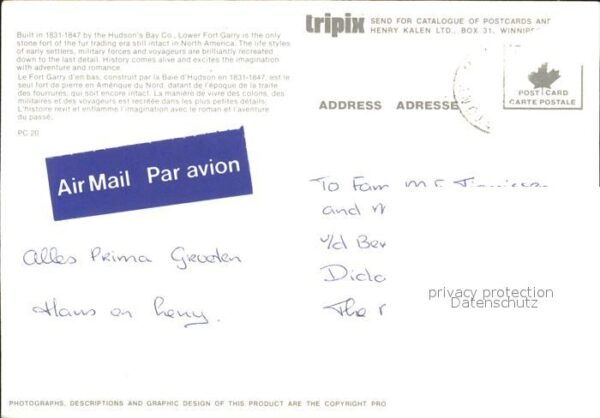 Built in 1831-1847 by the Hudson's Bay Co., Lower Fort Garry is the only
stone fort of the fur trading era still intact in North America. The life styles
of early settlers, military forces and voyageurs are brilliantly recreated
down to the last detail. History comes alive and excites the imagination
with adventure and romance.
Le Fort Garry d'en bas, construit par la Baie d'Hudson en 1831-1847, est le
seul fort de pierre en Amérique du Nord, datant de l'époque de la traite
des fourrures, qui soit encore intact. La manière de vivre des colons, des
militaires et des voyageurs est recréée dans les plus petites détails.
L'histoire revit et enflamme l'imagination avec le roman et l'aventure
du passé.
PC 20
tripix SEND FOR CATALOGUE OF POSTCARDS AND
HENRY KALEN LTD., BOX 31, WINNIPE
POST CARD
CARTE POSTALE
ADDRESS ADRESSE
Air Mail Par avion
To Fam
and
v/d Ber
Dido
The
Alles Prima Groeten
Hans en
privacy protection
Datenschutz
PHOTOGRAPHS, DESCRIPTIONS AND GRAPHIC DESIGN OF THIS PRODUCT ARE THE COPYRIGHT PRO